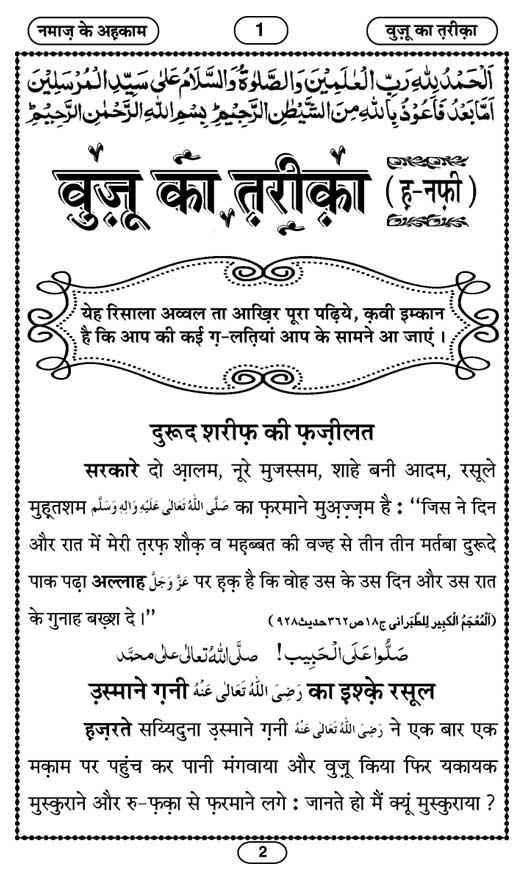 नमाज़ के अहकाम 1 वुज़ू का त़रीक़ा
اَلْحَمْدُ لِلّٰهِ رَبِّ الْعٰلَمِيْنَ وَالصَّلٰوةُ وَالسَّلَامُ عَلٰى سَيِّدِ الْمُرْسَلِيْنَ
اَمَّا بَعْدُ فَاَعُوْذُ بِاللّٰهِ مِنَ الشَّيْطٰنِ الرَّجِيْمِ ؕ بِسْمِ اللّٰهِ الرَّحْمٰنِ الرَّحِيْمِ ؕ
वुज़ू का त़रीक़ा (ह़-नफ़ी)
येह रिसाला अव्वल ता आख़िर पूरा पढ़िये, क़वी इम्कान
है कि आप की कई ग़-लतियां आप के सामने आ जाएं ।
दुरूद शरीफ़ की फ़ज़ीलत
सरकारे दो आ़लम, नूरे मुजस्सम, शाहे बनी आदम, रसूले
मुह़्तशम صَلَّى اللّٰهُ تَعَالٰى عَلَيْهِ وَاٰلِهٖ وَسَلَّم का फ़रमाने मुअ़ज़्ज़म है : ‘‘जिस ने दिन
और रात में मेरी त़रफ़ शौक़ व मह़ब्बत की वज्ह से तीन तीन मर्तबा दुरूदे
पाक पढ़ा अल्लाह عَزَّ وَجَلَّ पर ह़क़ है कि वोह उस के उस दिन और उस रात
के गुनाह बख़्श दे ।’’ (اَلْمُعْجَمُ الْكَبِير لِلطَّبَرانى ج١٨ص٣٦٢حديث٩٢٨)
صَلُّوا عَلَى الْحَبِيْب! صلَّى اللّٰهُ تعالٰى علٰى محمَّد
उ़स्माने ग़नी رَضِىَ اللّٰهُ تَعَالٰى عَنْهُ का इश्क़े रसूल
ह़ज़रते सय्यिदुना उ़स्माने ग़नी رَضِىَ اللّٰهُ تَعَالٰى عَنْهُ ने एक बार एक
मक़ाम पर पहुंच कर पानी मंगवाया और वुज़ू किया फिर यकायक
मुस्कुराने और रु-फ़क़ा से फ़रमाने लगे : जानते हो मैं क्यूं मुस्कुराया ?
2